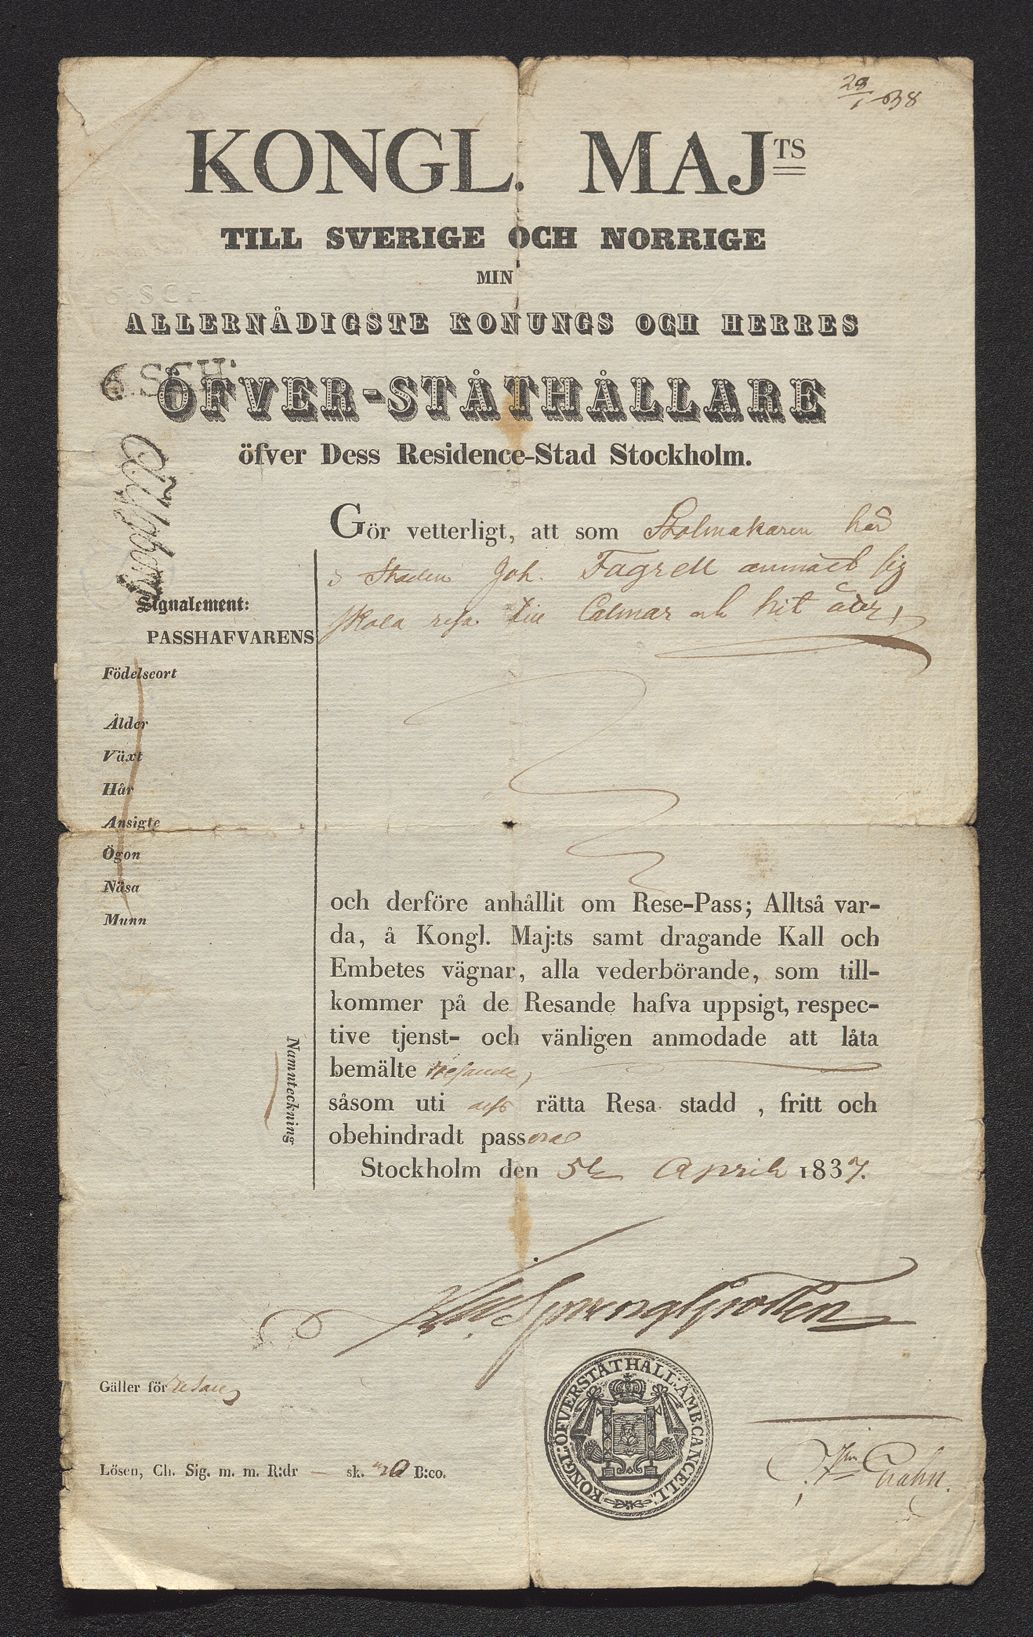 29/1 838
KONGL. MAJTS
TILL SVERIGE OCH NORRIGE
MIN
ALLERNÅDIGSTE KONUNGS OCH HERRES
6.SCH.
ÖFVER-STÅTHÅLLARE
öfver Dess Residence-Stad Stockholm.
Gör vetterligt, att som Stolmakaren här
i Staden Joh. Fagrell anmält sig
skola resa till Calmar och hit åter,
Signalement:
PASSHAFVARENS
Födelseort
Ålder
Växt
Hår
Ansigte
Ögon
Näsa
Munn
Namnteckning
och derföre anhållit om Rese-Pass; Alltså var-
da, å Kongl. Maj:ts samt dragande Kall och
Embetes vägnar, alla vederbörande, som till-
kommer på de Resande hafva uppsigt, respec-
tive tjenst- och vänligen anmodade att låta
bemälte Resande,
såsom uti dess rätta Resa stadd , fritt och
obehindradt passera
Stockholm den 5te April 1837.
Gäller för resan
KONGL: ÖFVERSTÅTHÅLL. AMB. CANCELL.
Lösen, Ch. Sig. m. m. R:dr — sk. 20 B:co.